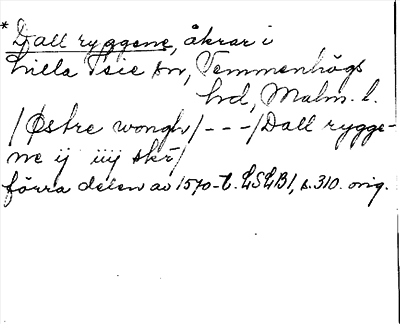 * Dall ryggene, åkrar i
Lilla Isie sn, Vemmenhögs
hd, Malm. l.
/Østre wongh/---/Dall rygge-
ne ij iiij skr/
förra delen av 1570-t. LSLB1, s. 310. orig.